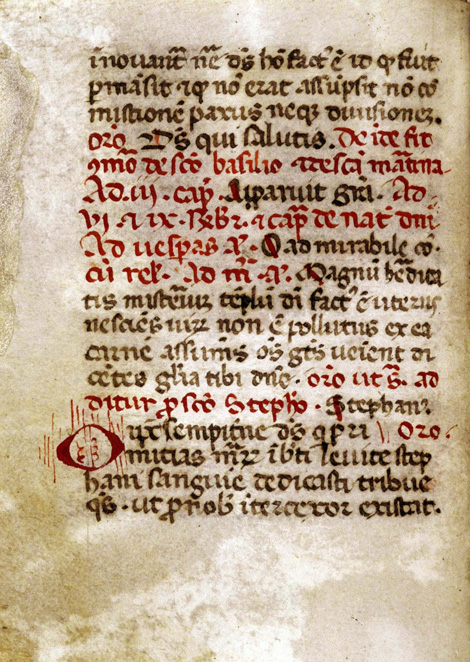 inovant̃ nr̃e d̃s hõ fact' ẽ id q̃ fuit
p̱mãsit ⁊ q̃ nõ erat assũpsit nõ cõ
mistionẽ passus neq̃ diuisionez.
or̃o D̃s qui salutis. De ite fit
ꝯmõ de scõ basilio
Ad .iij. cap̃. Apparuit gr̃a. Ad
VI ⁊ IX. ⁊ cap̃ de nat' dñi
Ad uesperas a̓. O ad mirabile co.
cũ rel'. Ad m̃. a̓. Magnũ hẽdita
tis misteriuz tẽplũ di fact' ẽ uterus
nesciẽs uiꝝ non ẽ pollutus ex ea
carnẽ assumẽs oẽs gẽs ueient di
cẽtes gl̃ia tibi dñe. or̃o ut s̃. ad
ditur p̱ scõ Stepħo. Stephani.
O ĩp̃s sempit̃ne d̃s q̃ p̱ri Oro.
mitias mr̃ꝝ ĩ bt̃i leuite step
hani sanguie dedicasti tribue
q̃s. ut p̱ nob̃ itercexor existat.